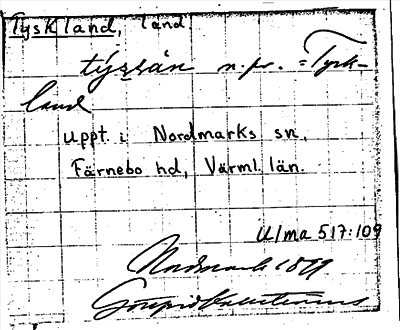 Tyskland, land
týssán n.pr. = Tysk-
land
uppt. i Nordmarks sn,
Färnebo hd, Värml. län.
Ulma 517:109
Nordmark 1899